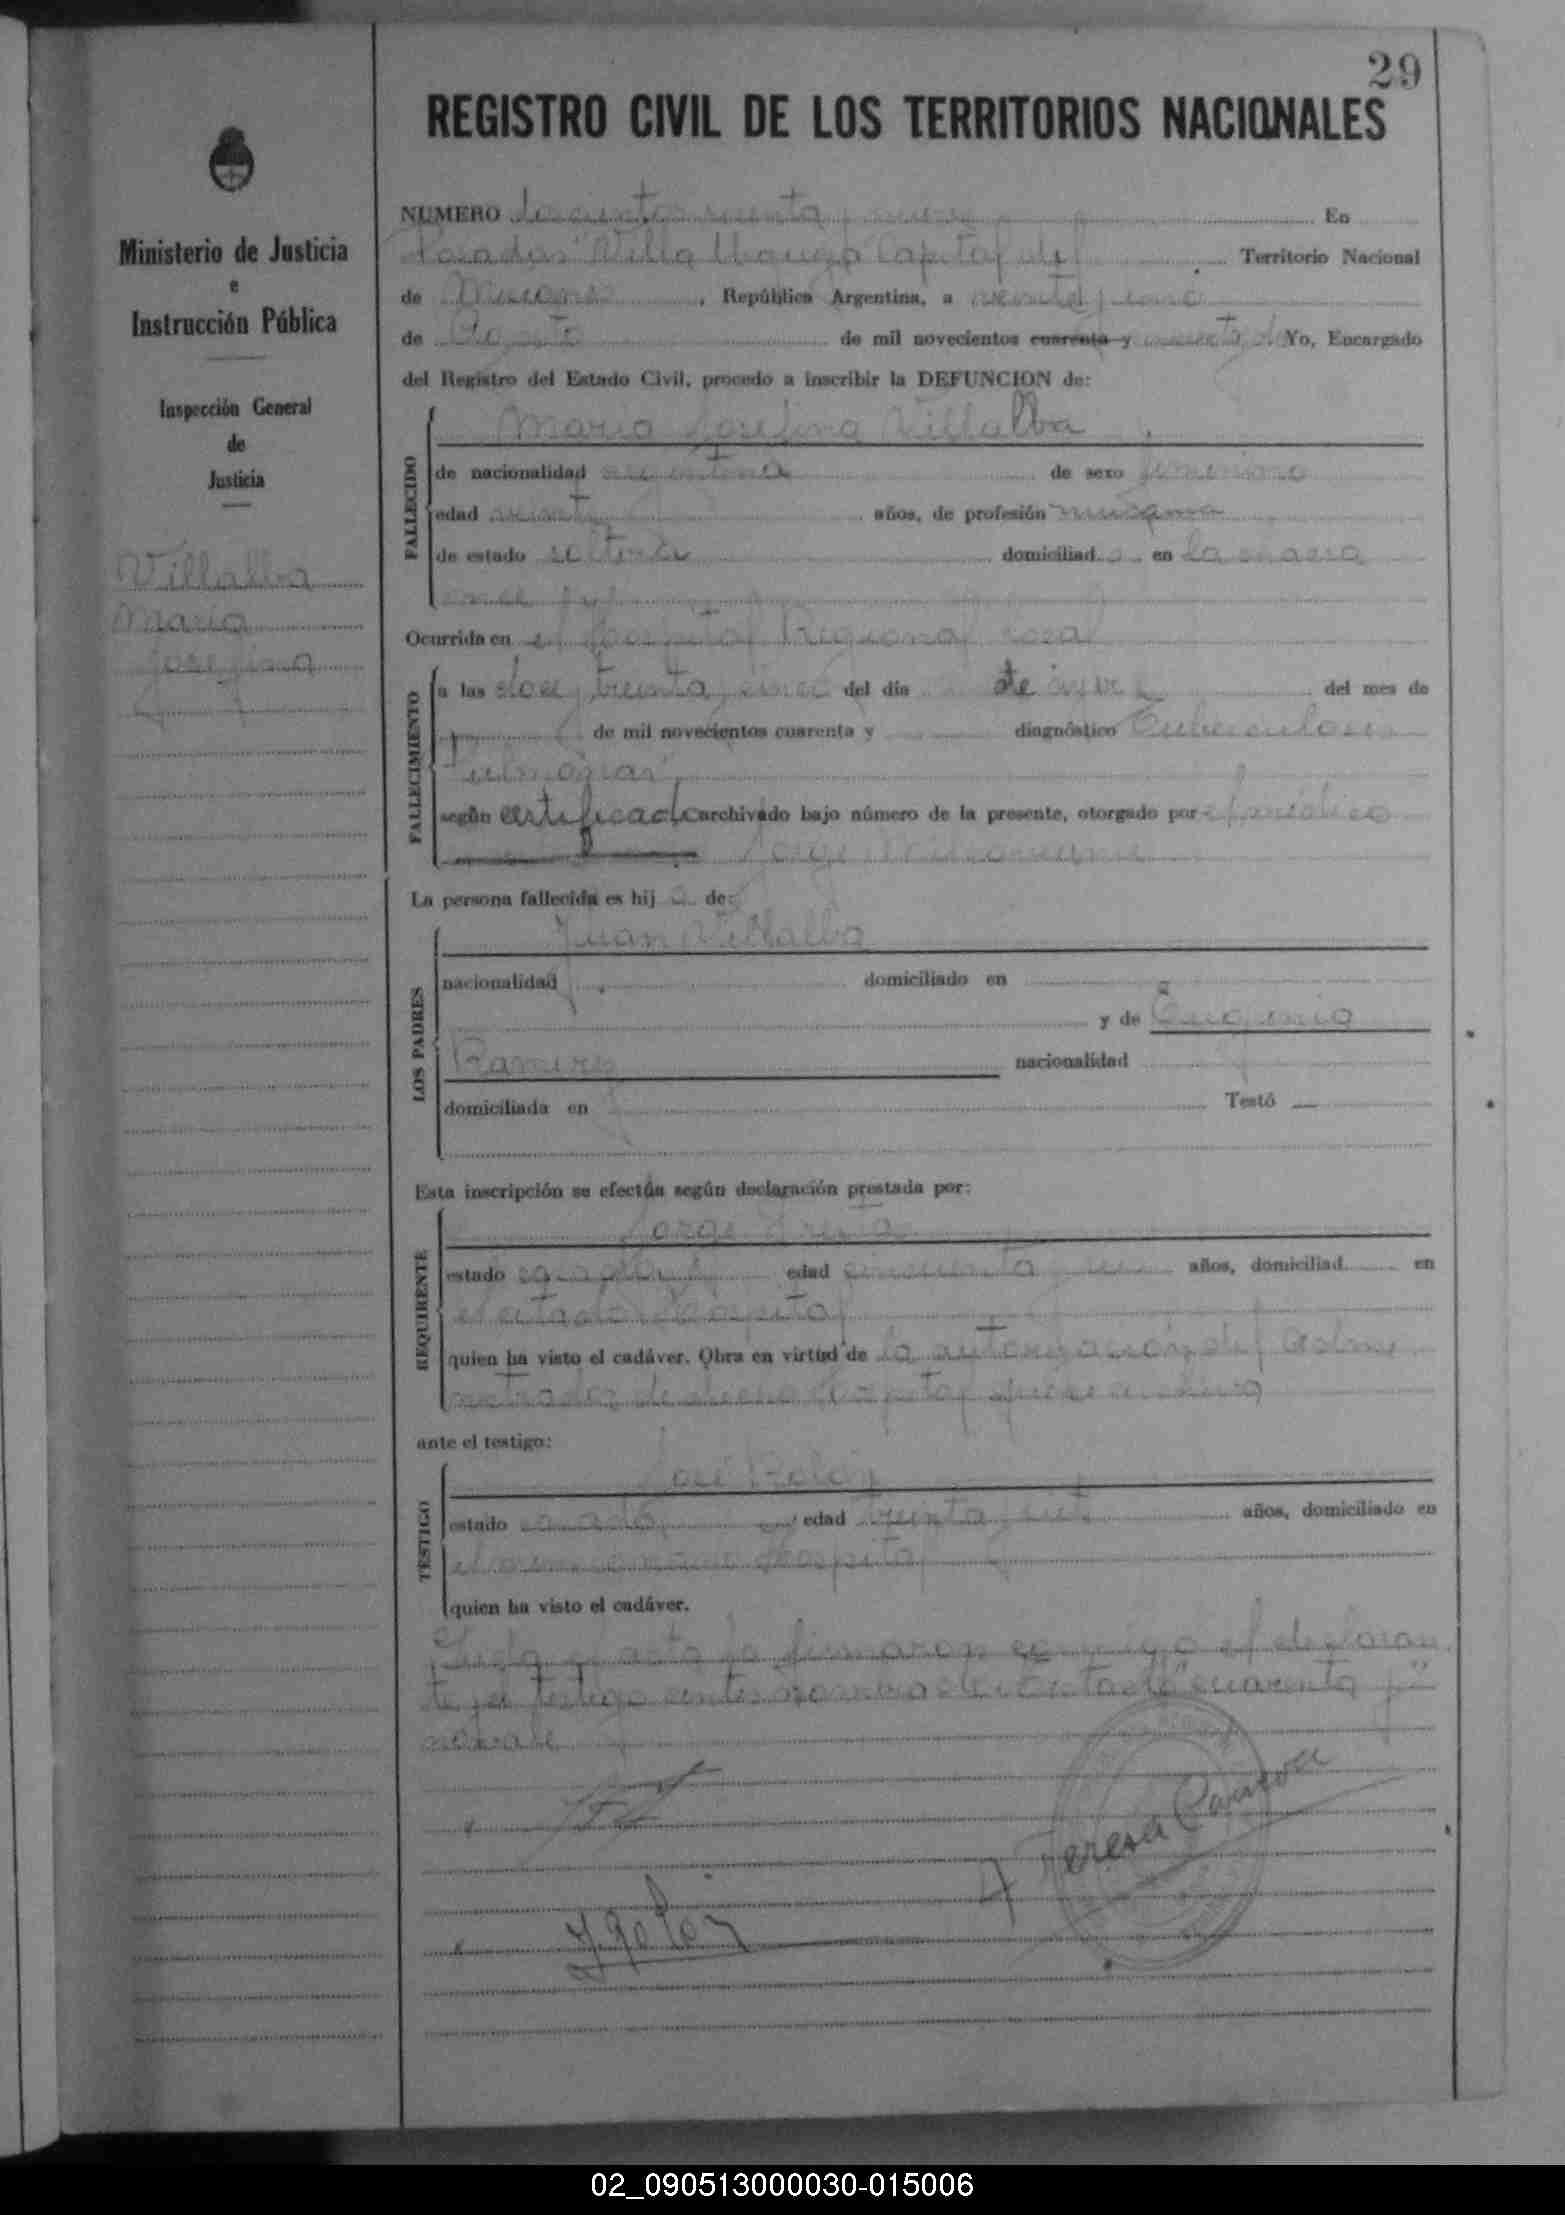 29
REGISTRO CIVIL DE LOS TERRITORIOS NACIONALES
Ministerio de Justicia
e
Instrucción Pública
Inspección General
de
Justicia
Villalba
Maria
Josefina
NUMERO doscientos y nueve En
Posadas Villa Capital del Territorio Nacional
de Misiones, República Argentina, a veinte y uno
de Agosto de mil novecientos cuarenta y Yo, Encargado
del Registro del Estado Civil, procedo a inscribir la DEFUNCION de:
FALLECIDO
Maria Josefina Villalba
de nacionalidad argentina de sexo femenino
edad veinte años, de profesión mucama
de estado soltera domiciliada en
Ocurrida en el Hospital Regional local
FALLECIMIENTO
a las doce y treinta y cinco del día de ayer del mes de
de mil novecientos cuarenta y diagnóstico Tuberculosis
Pulmonar
según certificado archivado bajo número de la presente, otorgado por el médico
Jorge
La persona fallecida es hija de:
LOS PADRES
Juan Villalba
nacionalidad domiciliado en
y de Eugenia
Ramirez nacionalidad
domiciliada en Testó
Esta inscripción se efectúa según declaración prestada por:
REQUIRENTE
Jorge
estado casado edad cincuenta y un años, domiciliad en
el citado Hospital
quien ha visto el cadáver. Obra en virtud de la autorización del Admi
nistrador de dicho Hospital que se archiva
ante el testigo:
TESTIGO
José Rolón
estado casado edad treinta y siete años, domiciliado en
el Hospital
quien ha visto el cadáver.
Leida el acta la firmaron conmigo el declaran
te y el testigo antes nombrados Testado "cuarenta y"
no vale
Teresa
02_090513000030-015006